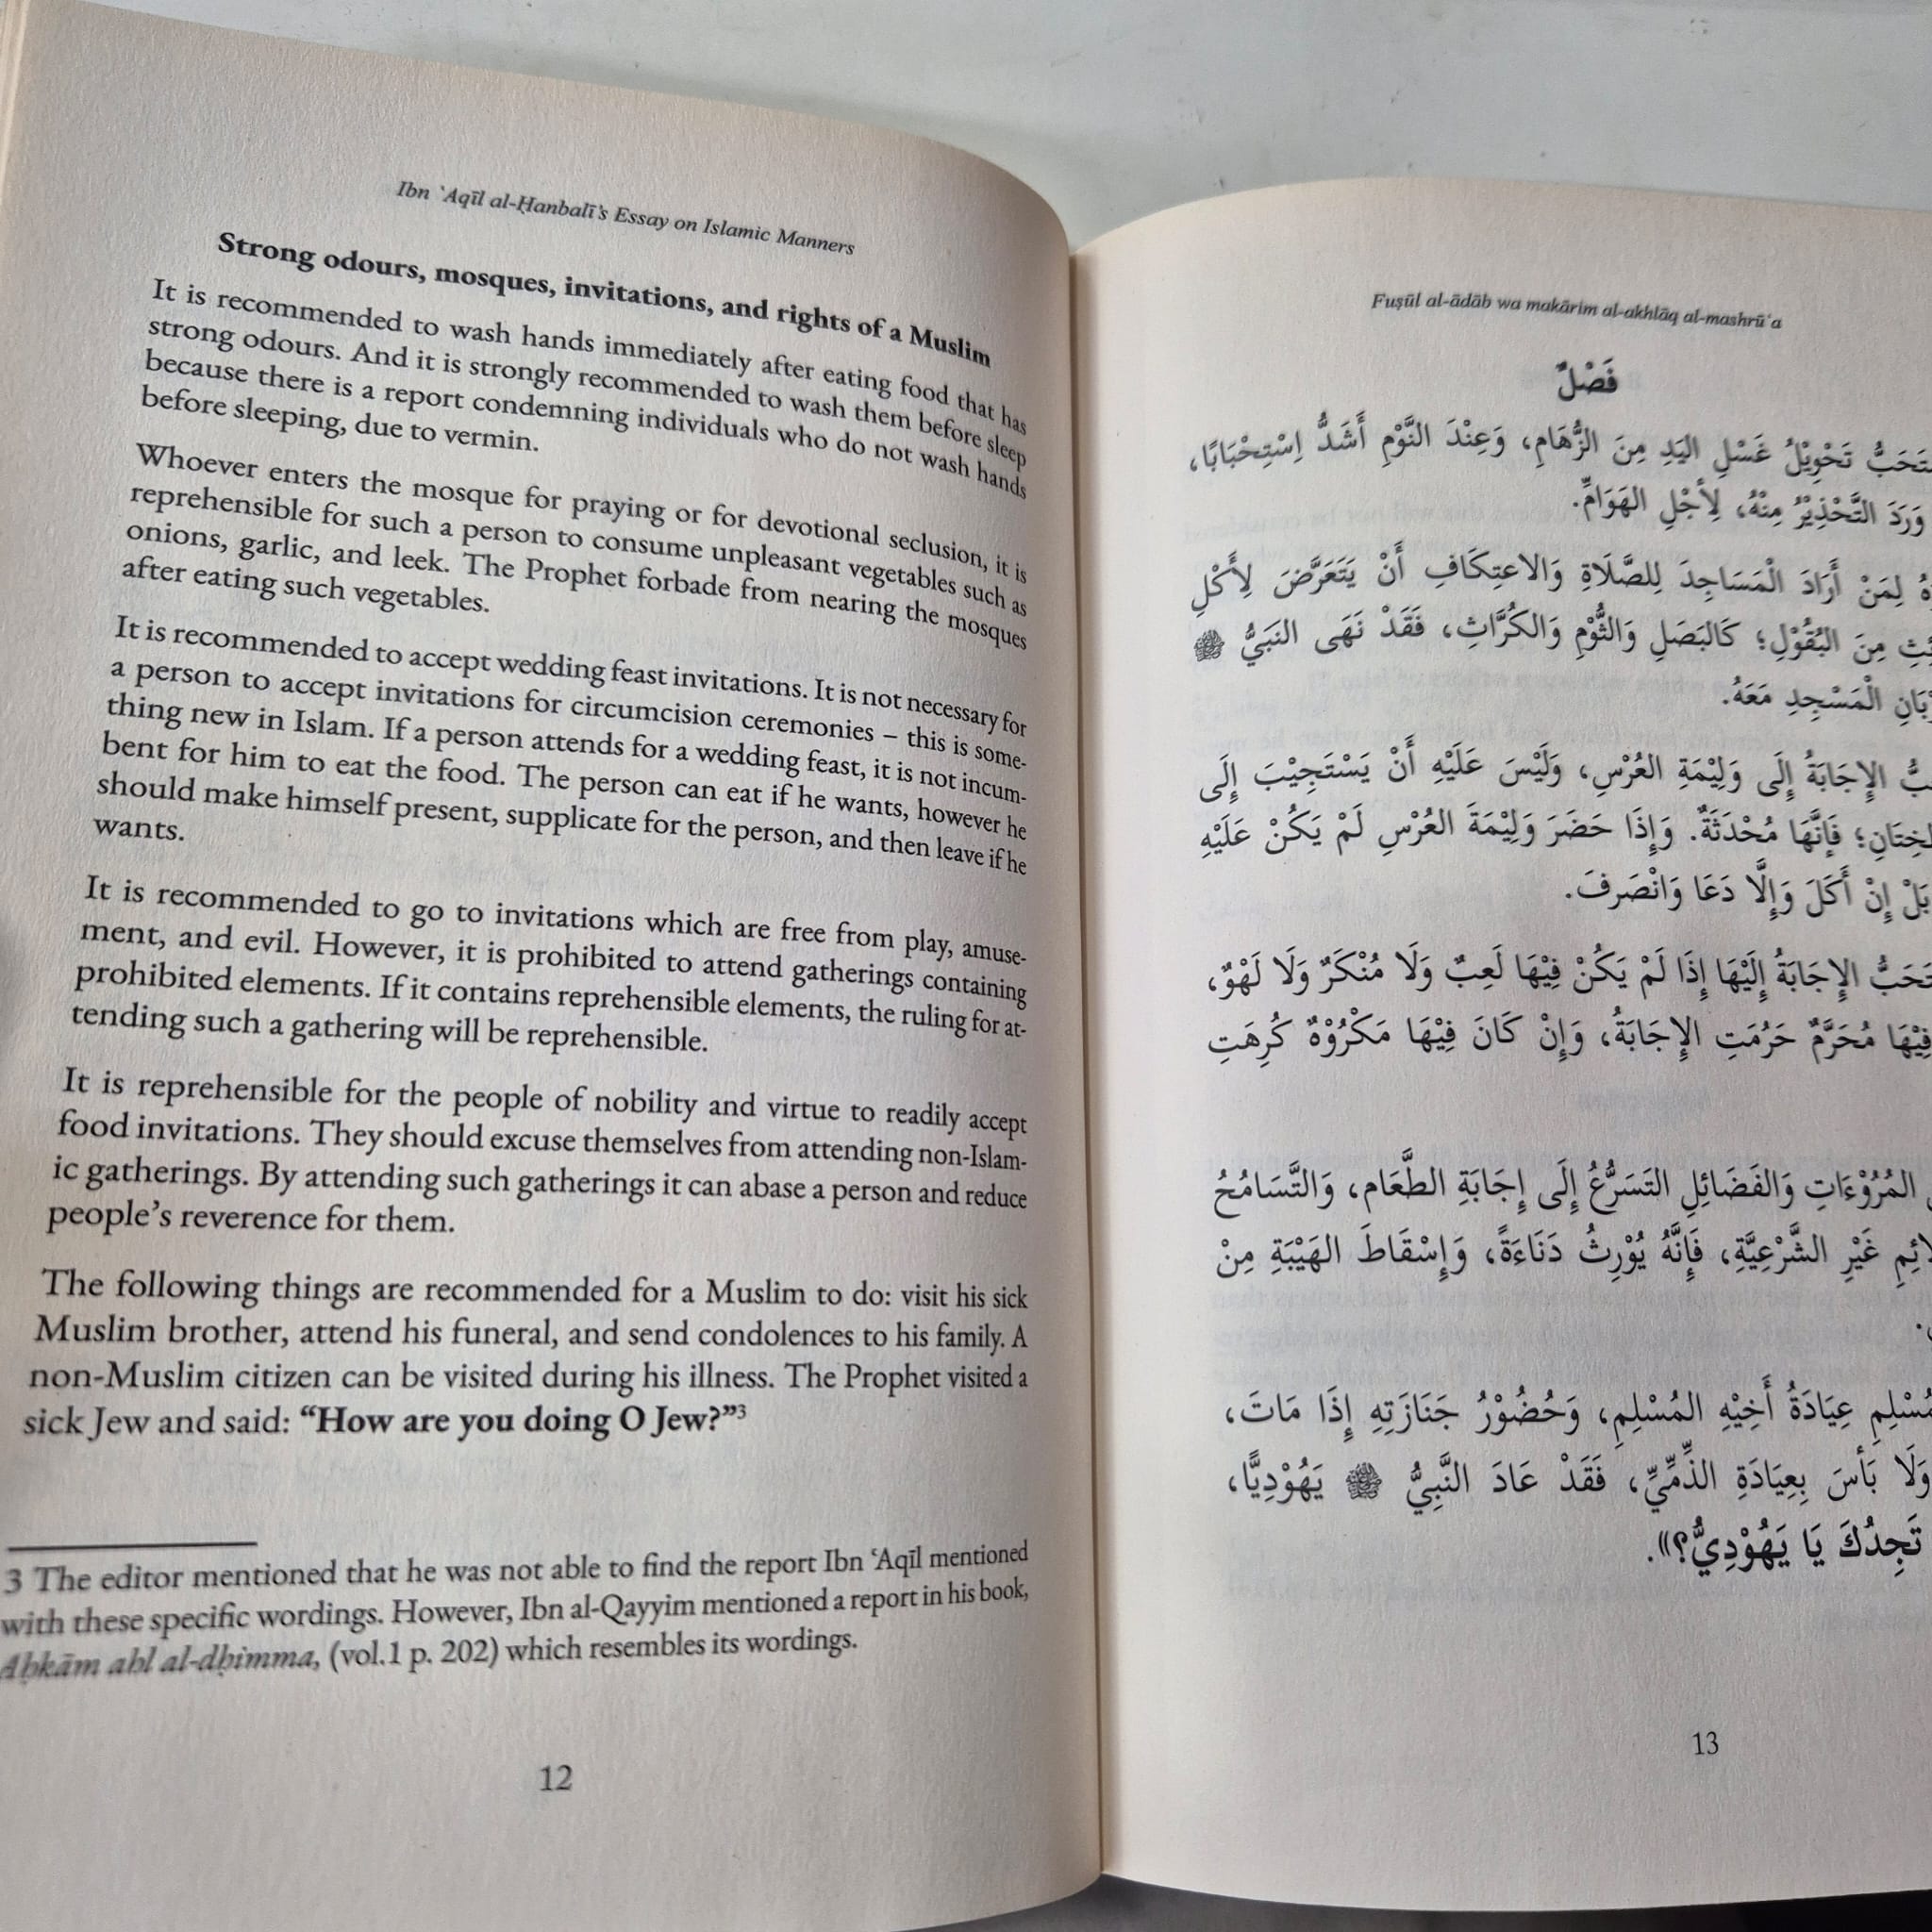 Ibn ʿAqīl al-Ḥanbalī's Essay on Islamic Manners
Strong odours, mosques, invitations, and rights of a Muslim
It is recommended to wash hands immediately after eating food that has
strong odours. And it is strongly recommended to wash them before sleep
because there is a report condemning individuals who do not wash hands
before sleeping, due to vermin.
Whoever enters the mosque for praying or for devotional seclusion, it is
reprehensible for such a person to consume unpleasant vegetables such as
onions, garlic, and leek. The Prophet forbade from nearing the mosques
after eating such vegetables.
It is recommended to accept wedding feast invitations. It is not necessary for
a person to accept invitations for circumcision ceremonies – this is some-
thing new in Islam. If a person attends for a wedding feast, it is not incum-
bent for him to eat the food. The person can eat if he wants, however he
should make himself present, supplicate for the person, and then leave if he
wants.
It is recommended to go to invitations which are free from play, amuse-
ment, and evil. However, it is prohibited to attend gatherings containing
prohibited elements. If it contains reprehensible elements, the ruling for at-
tending such a gathering will be reprehensible.
It is reprehensible for the people of nobility and virtue to readily accept
food invitations. They should excuse themselves from attending non-Islam-
ic gatherings. By attending such gatherings it can abase a person and reduce
people's reverence for them.
The following things are recommended for a Muslim to do: visit his sick
Muslim brother, attend his funeral, and send condolences to his family. A
non-Muslim citizen can be visited during his illness. The Prophet visited a
sick Jew and said: “How are you doing O Jew?”3
3 The editor mentioned that he was not able to find the report Ibn ʿAqīl mentioned
with these specific wordings. However, Ibn al-Qayyim mentioned a report in his book,
Aḥkām ahl al-dhimma, (vol.1 p. 202) which resembles its wordings.
12
Fuṣūl al-ādāb wa makārim al-akhlāq al-mashrūʿa
فَصْلٌ
تَحْوِيْلُ غَسْلِ اليَدِ مِنَ الزُّهَامِ، وَعِنْدَ النَّوْمِ أَشَدُّ اِسْتِحْبَابًا،
وَرَدَ التَّحْذِيْرُ مِنْهُ، لِأَجْلِ الهَوَامِّ.
لِمَنْ أَرَادَ الْمَسَاجِدَ لِلصَّلَاةِ وَالاعتِكَافِ أَنْ يَتَعَرَّضَ لِأَكْلِ
مِنَ البُقُوْلِ؛ كَالبَصَلِ وَالثُّوْمِ وَالكُرَّاثِ، فَقَدْ نَهَى النَبِيُّ ﷺ
الْمَسْجِدِ مَعَهُ.
الإِجَابَةُ إِلَى وَلِيْمَةِ العُرْسِ، وَلَيْسَ عَلَيْهِ أَنْ يَسْتَجِيْبَ إِلَى
فَإِنَّهَا مُحْدَثَةٌ. وَإِذَا حَضَرَ وَلِيْمَةَ العُرْسِ لَمْ يَكُنْ عَلَيْهِ
بَلْ إِنْ أَكَلَ وَإِلَّا دَعَا وَانْصَرفَ.
الإِجَابَةُ إِلَيْهَا إِذَا لَمْ يَكُنْ فِيْهَا لَعِبٌ وَلَا مُنْكَرٌ وَلَا لَهْوٌ،
فِيْهَا مُحَرَّمٌ حَرُمَتِ الإِجَابَةُ، وَإِنْ كَانَ فِيْهَا مَكْرُوْهٌ كُرِهَتِ
المُرُوْءَاتِ وَالفَضَائِلِ التَسَرُّعُ إِلَى إِجَابَةِ الطَّعَامِ، وَالتَّسَامُحُ
غَيْرِ الشَّرْعِيَّةِ، فَإِنَّهُ يُوْرِثُ دَنَاءَةً، وَإِسْقَاطَ الهَيْبَةِ مِنْ
عِيَادَةُ أَخِيْهِ المُسْلِمِ، وَحُضُوْرُ جَنَازَتِهِ إِذَا مَاتَ،
وَلَا بَأسَ بِعِيَادَةِ الذِّمِّيِّ، فَقَدْ عَادَ النَّبِيُّ ﷺ يَهُوْدِيًّا،
تَجِدُكَ يَا يَهُوْدِيُّ؟».
13